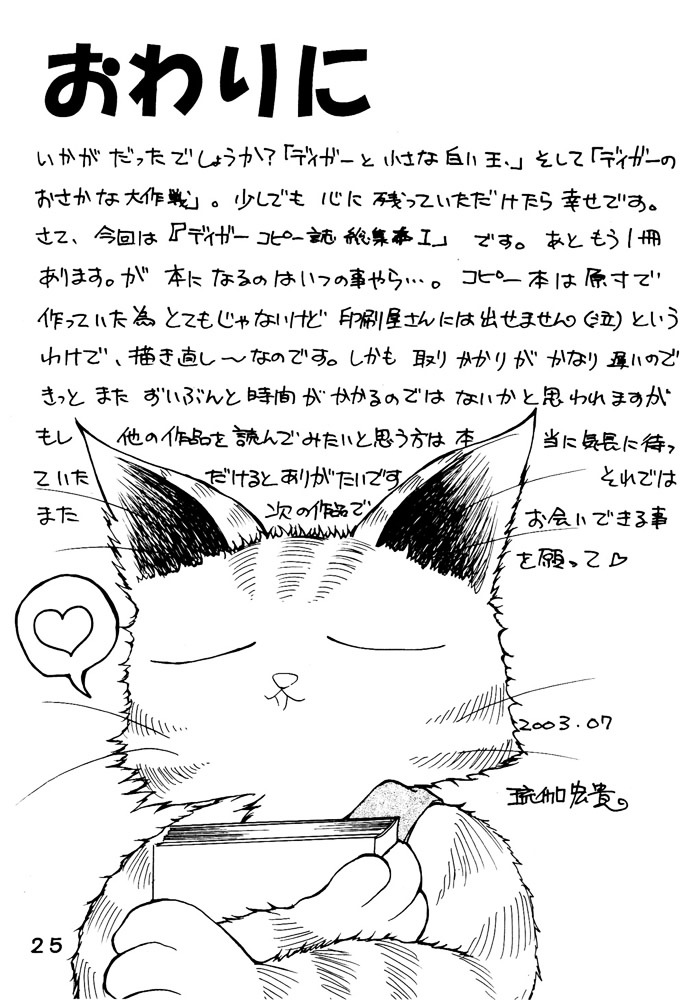 おわりに
いかがだったでしょうか?「ディガーと小さな白い王、」そして「ディガーの
おさかな大作戦」。少しでも心に残っていただけたら幸せです。
さて、今回は『ディガーコピー誌総集本I」です。あともう1冊
あります。が本になるのはいつの事やら…。コピー本は原寸で
作っていた為とてもじゃないけど印刷屋さんには出せません(泣)という
わけで、描き直し〜なのです。しかも取りかかりがかなり遅いので
きっとまたずいぶんと時間がかかるのではないかと思われますが
もし他の作品を読んでみたいと思う方は本当に気長に待っ
ていただけるとありがたいですそれでは
また次の作品でお会いできる事
を願って♡
2003.07
琉伽宏貴。
25